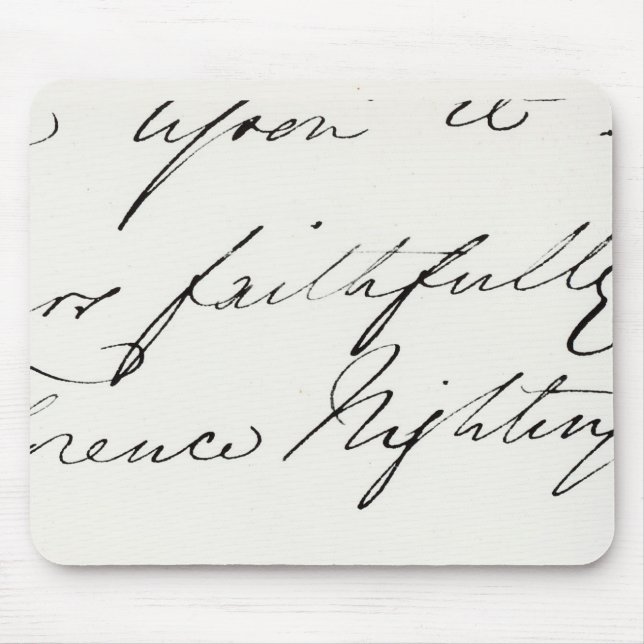 upon it
faithfully
rence Nighting